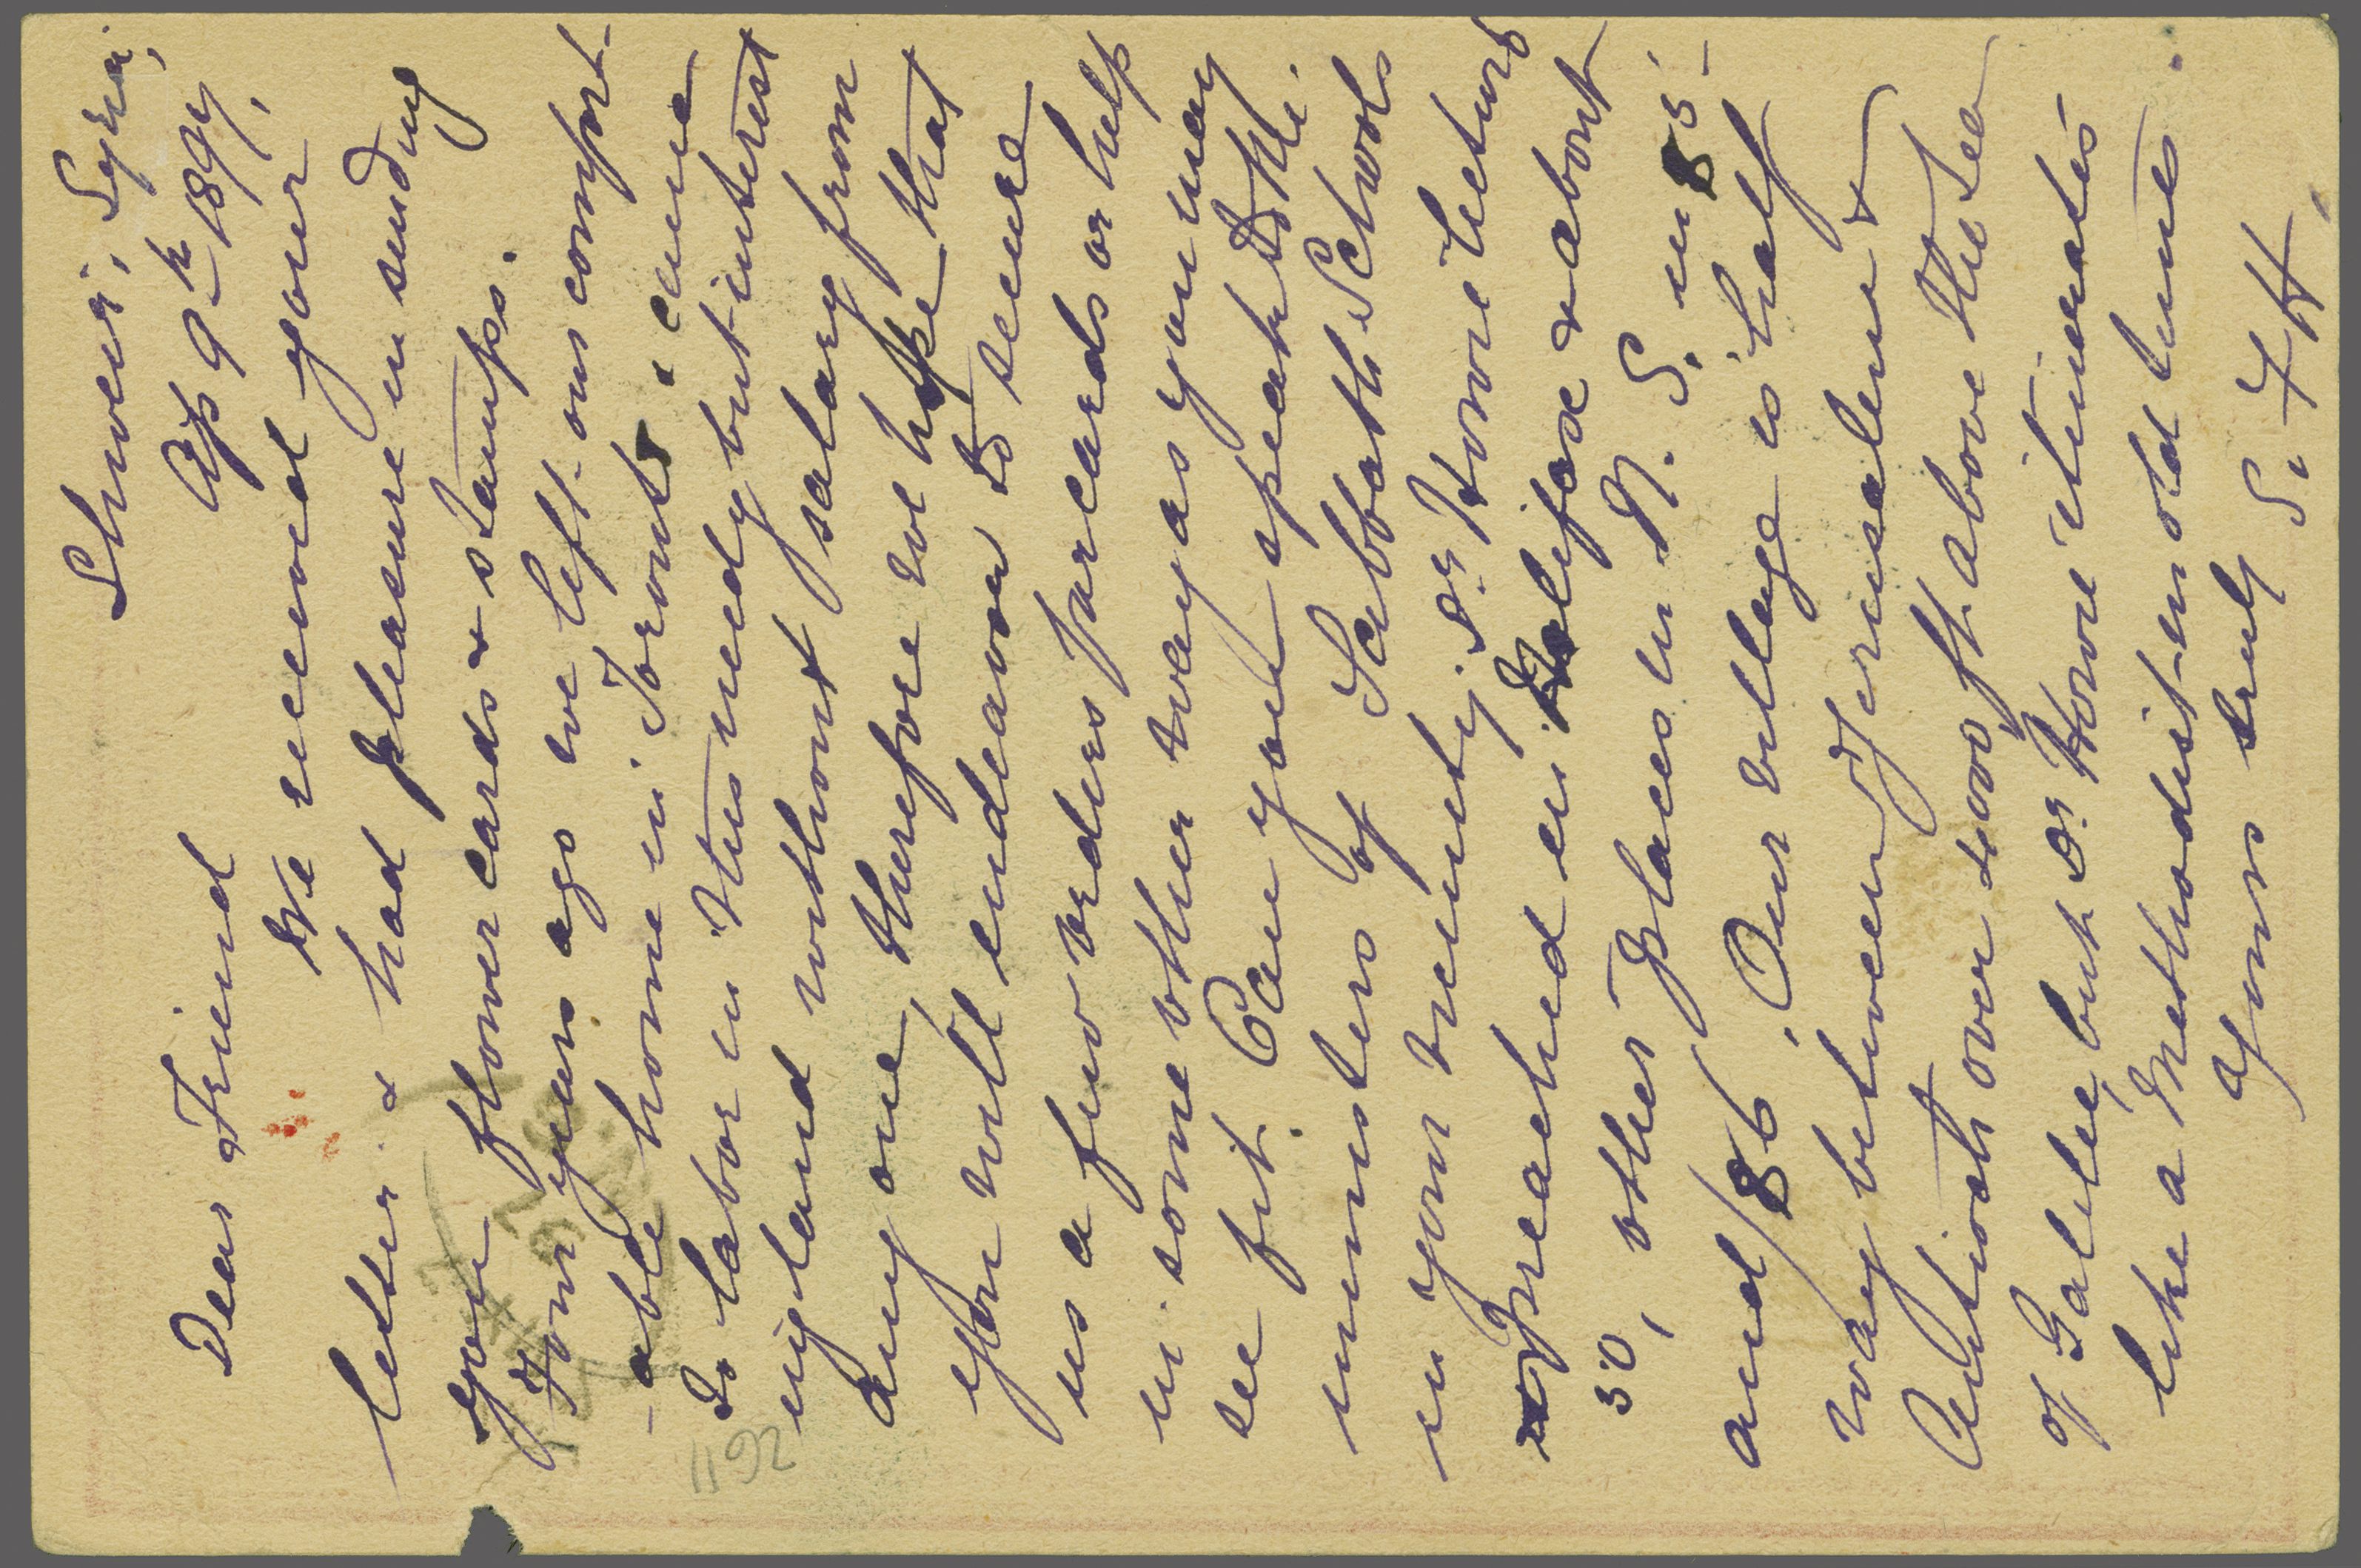 Shweir, Syria,
Ap 9th 1894,
Dear Friend
We received your
letter & had pleasure in sending
you flower cards & stamps.
Four years ago we left our comfort-
-able home in Toronto & came
to labor in this needy but interest
ing land without salary from
any one, therefore we hope that
you will endeavor to secure
us a few orders for cards or help
in some other way as you may
see fit. Can you speak to the
ministers of Sabbath Schools
in your vicinity. Dr Howie lectured
& preached in Halifax & about
30, other places in N. S. in 85-
and/86. Our village is half
way between Jerusalem &
Antioch over 4000 ft above the sea
of Galilee, but Dr Howie itinerates
like a Methodist in old times.
Yours truly S. H.
1192